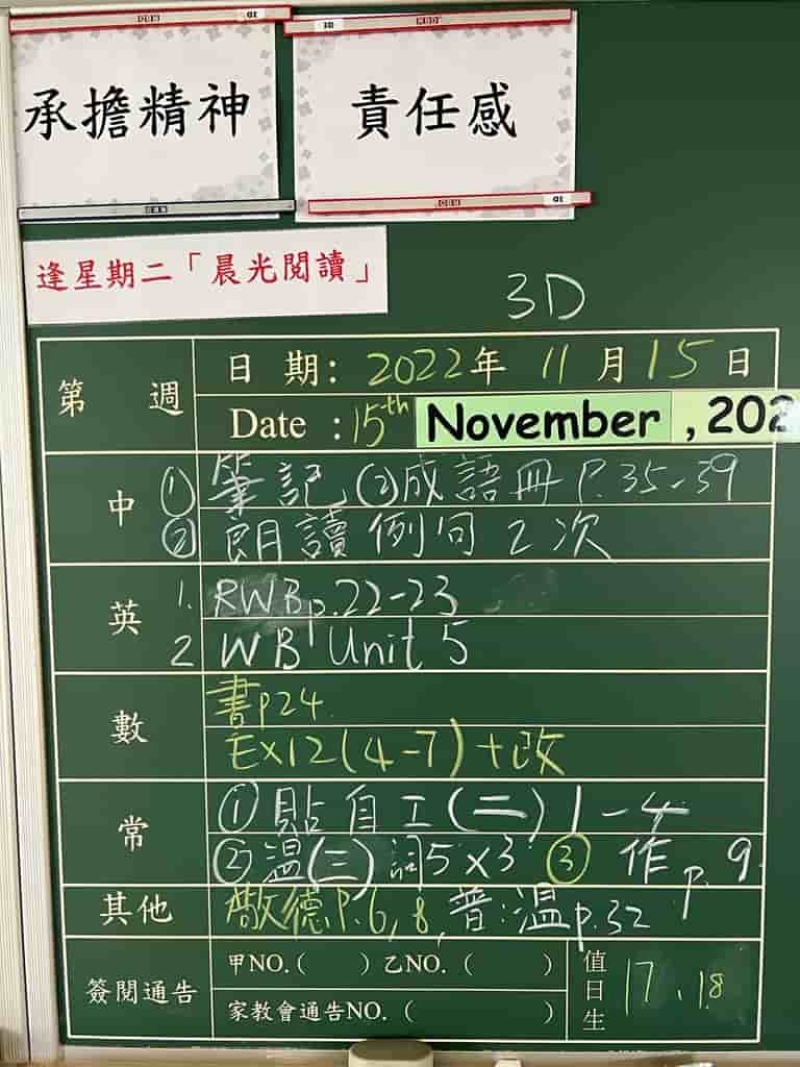 承擔精神
責任感
逢星期二「晨光閱讀」
3D
第 週
日 期: 2022年 11月15日
Date : 15th November, 202
中 ① 筆記 ②成語冊 P.35-39
② 朗讀例句2次
英 1. RWB p.22-23
2 WB Unit 5
數 書p24.
Ex12(4-7)+改
常 ①貼自工(二)1-4
②溫(三)詞5x3 ③ 作 p.9.
其他 敬德P.6,8,普:溫p.32
簽閱通告 甲NO.( ) 乙NO.( )
家教會通告NO.( )
值日生 17、18